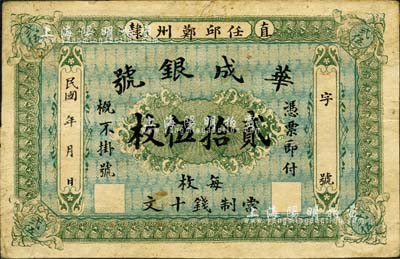 直隸任邱鄭州
華成銀號
憑票即付
貳拾伍枚
概不掛號
每枚
當制錢十文
字號
民國年月日
上海陽明拍賣